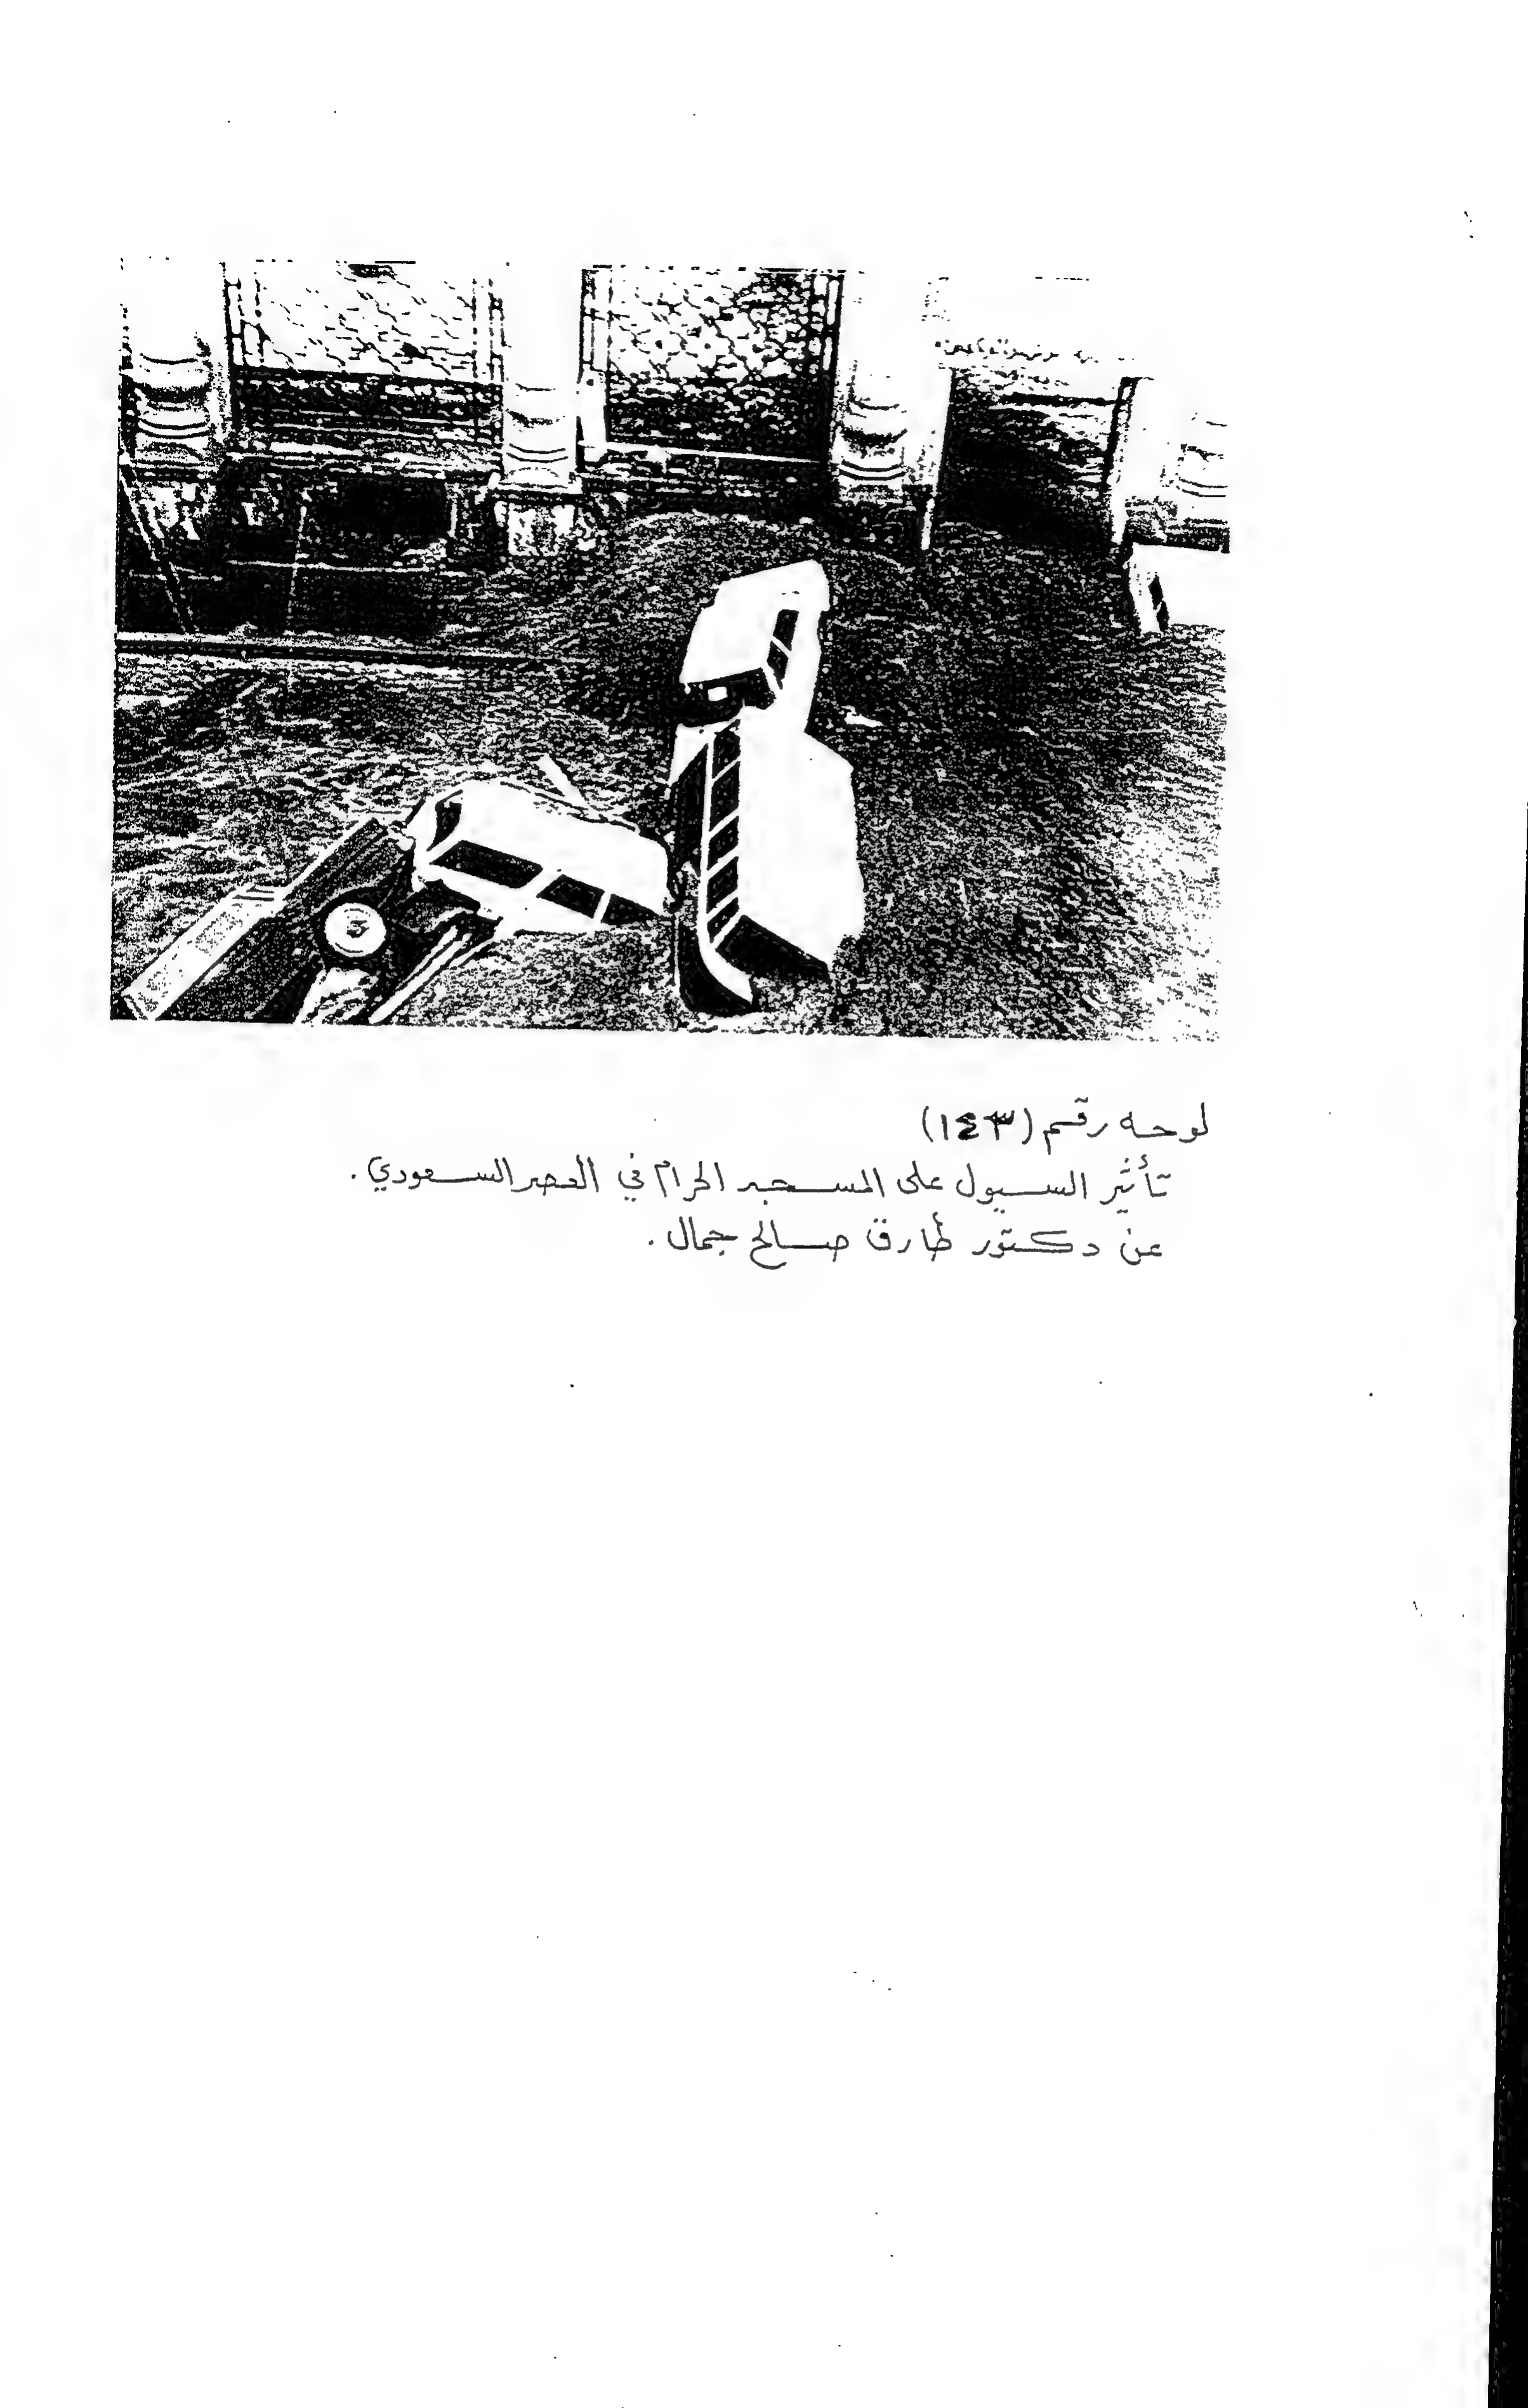 لوحه رقم (١٤٣)
تأثير السيول على المسجد الحرام في العصر السعودي.
عن دكتور طارق صالح جمال.